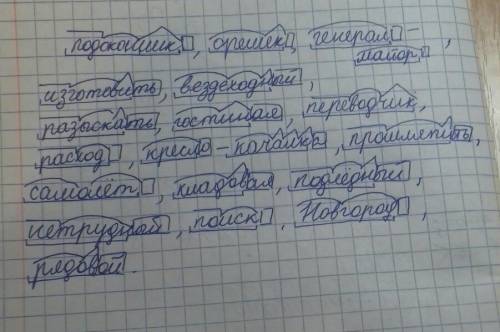 подоконник, орешек, генерал-
майор,
изготовить, вездеходный,
разыскать, гостиная, переводчик,
расход, кресло-качалка, прошляпить,
самолёт, кладовая, подлёдный,
нетрудной, поиск, Новгород,
рядовой.